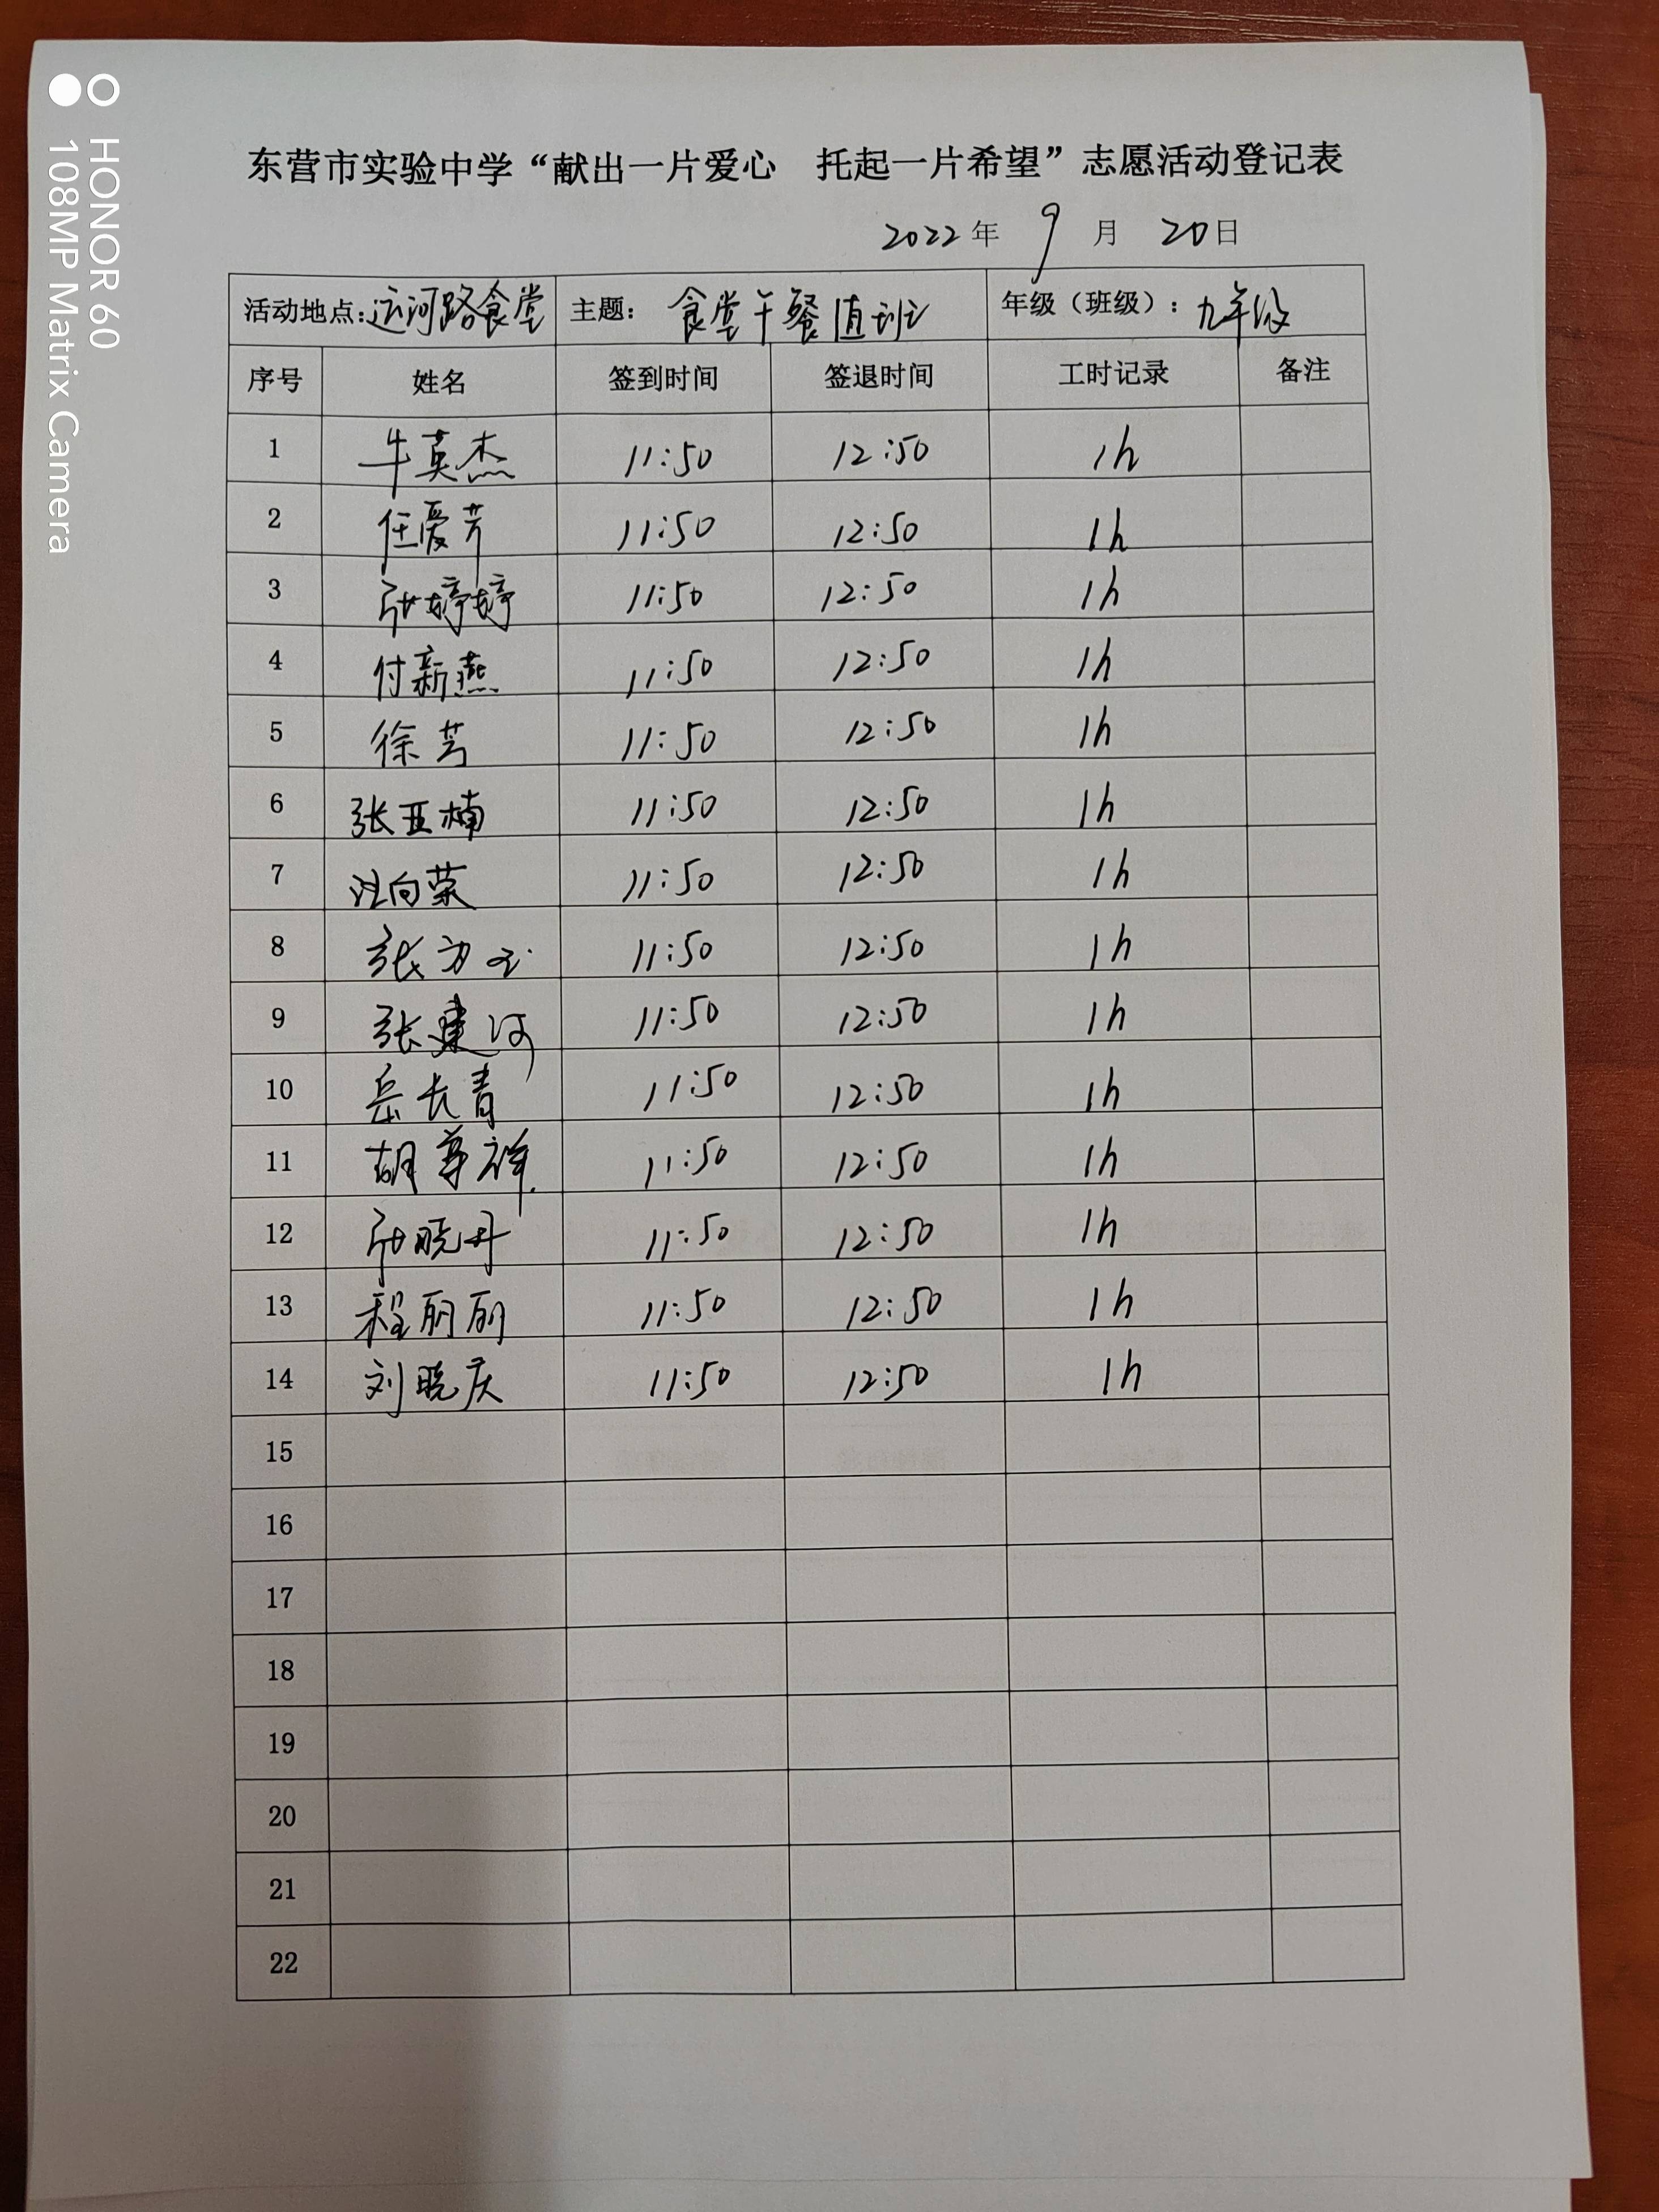 HONOR 60
108MP Matrix Camera
东营市实验中学“献出一片爱心　托起一片希望”志愿活动登记表
2022年 9 月 20日
活动地点:运河路食堂 主题: 食堂午餐值班 年级（班级）: 九年级
序号 姓名 签到时间 签退时间 工时记录 备注
1 牛英杰 11:50 12:50 1h
2 任爱芹 11:50 12:50 1h
3 张婷婷 11:50 12:50 1h
4 付新燕 11:50 12:50 1h
5 徐芳 11:50 12:50 1h
6 张亚楠 11:50 12:50 1h
7 汪向荣 11:50 12:50 1h
8 张 11:50 12:50 1h
9 张建河 11:50 12:50 1h
10 岳长青 11:50 12:50 1h
11 胡尊祥 11:50 12:50 1h
12 张晓丹 11:50 12:50 1h
13 程丽丽 11:50 12:50 1h
14 刘晓庆 11:50 12:50 1h
15
16
17
18
19
20
21
22